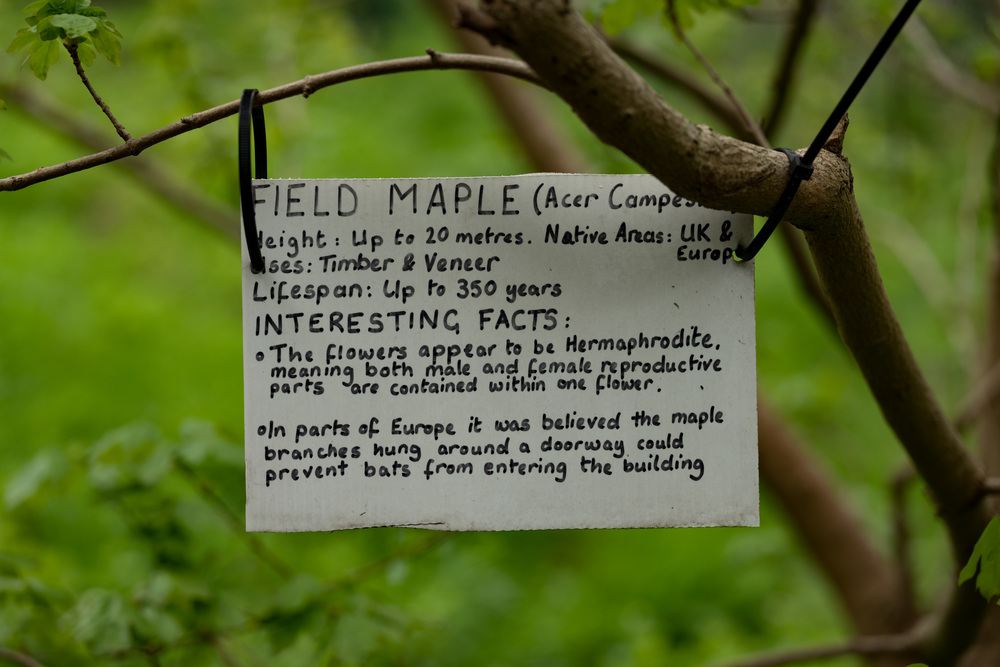 FIELD MAPLE (Acer Campes
Height: Up to 20 metres. Native Areas: UK &
Europ
Uses: Timber & Veneer
Lifespan: Up to 350 years
INTERESTING FACTS:
• The flowers appear to be Hermaphrodite,
meaning both male and female reproductive
parts are contained within one flower.
• In parts of Europe it was believed the maple
branches hung around a doorway could
prevent bats from entering the building